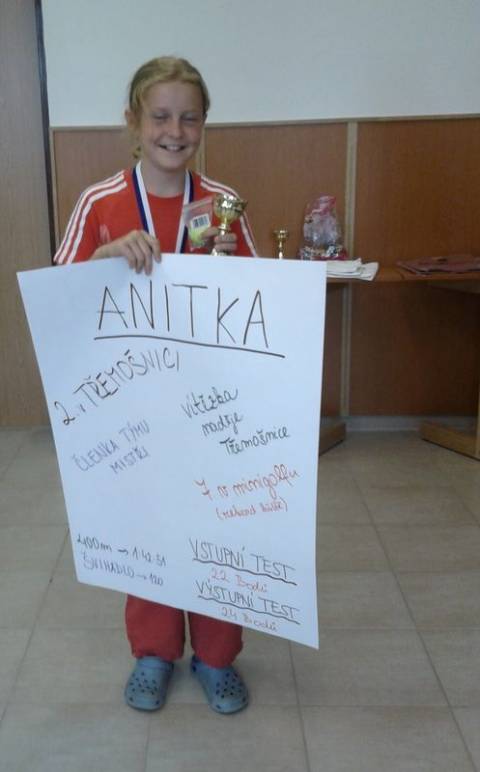 ANITKA
2. v TŘEMOŠNICI
ČLENKA TÝMU
MISTŘI
Vítězka
naděje
Třemošnice
7 v minigolfu
(rekord
VSTUPNÍ TEST
22 Bodů
VÝSTUPNÍ TEST
24 Bodů
400m → 1:42:51
ŠVIHADLO → 120